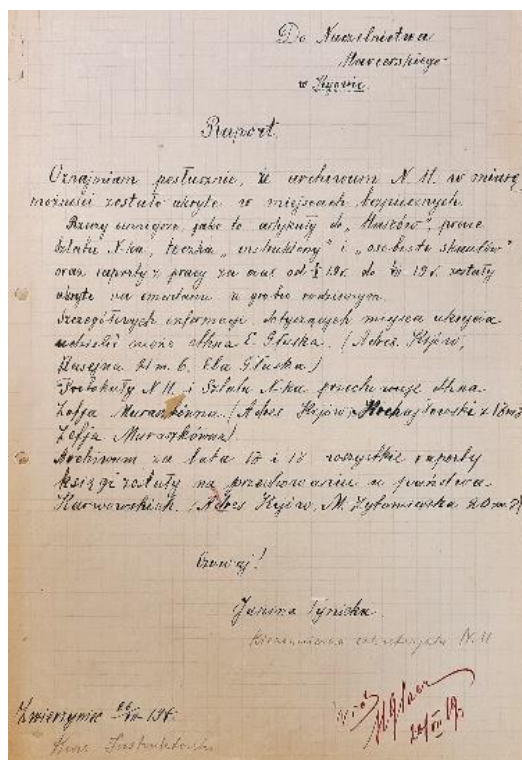 Do Naczelnictwa
Harcerskiego
w Kijowie.
Raport.
Oznajmiam posłusznie, że archiwum N.H. w miarę
możności zostało ukryte w miejscach bezpiecznych.
Rzeczy ważniejsze, jako to artykuły do "Starów", prace
Sztabu N-ka, teczka "instruktorzy" i "osobiste skautów"
oraz raporty z pracy za czas od I 19 r. do VII 19 r. zostały
ukryte na cmentarzu w grobie rodzinnym.
Szczegółowych informacji dotyczących miejsca ukrycia
udzielić może dhna E. Głuska. (Adres. Kijów,
21 m. 6. Ela Głuska)
Protokuły N.H. i Sztabu N-ka przechowuje dhna
Zofja Muraszkówna. (Adres Kijów, 
Zofja Muraszkówna)
Archiwum za lata 18 i 17 wszystkie raporty
księgi zostały na przechowaniu u państwa
Karwowskich. (Adres Kijów, M. Żytomierska 20 m.
Czuwaj!
Janina Tynicka
Kierowniczka sekretarjatu N.H
Zwierzyniec 26 VII 19 r.
Kurs Instruktorski